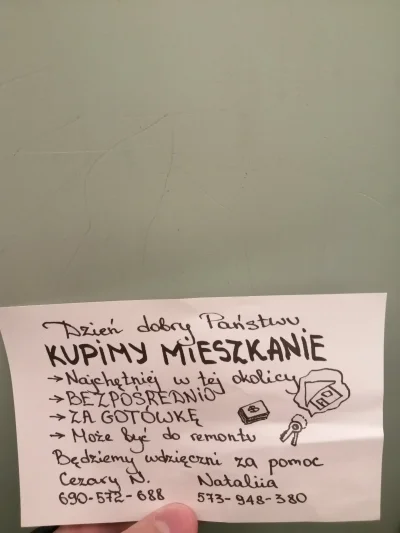 Dzień dobry Państwu
KUPIMY MIESZKANIE
→ Najchętniej w tej okolicy
→ BEZPOŚREDNIO
→ ZA GOTÓWKĘ
→ Może być do remontu
Będziemy wdzięczni za pomoc
Cezary N. Nataliia
690-572-688 573-948-380